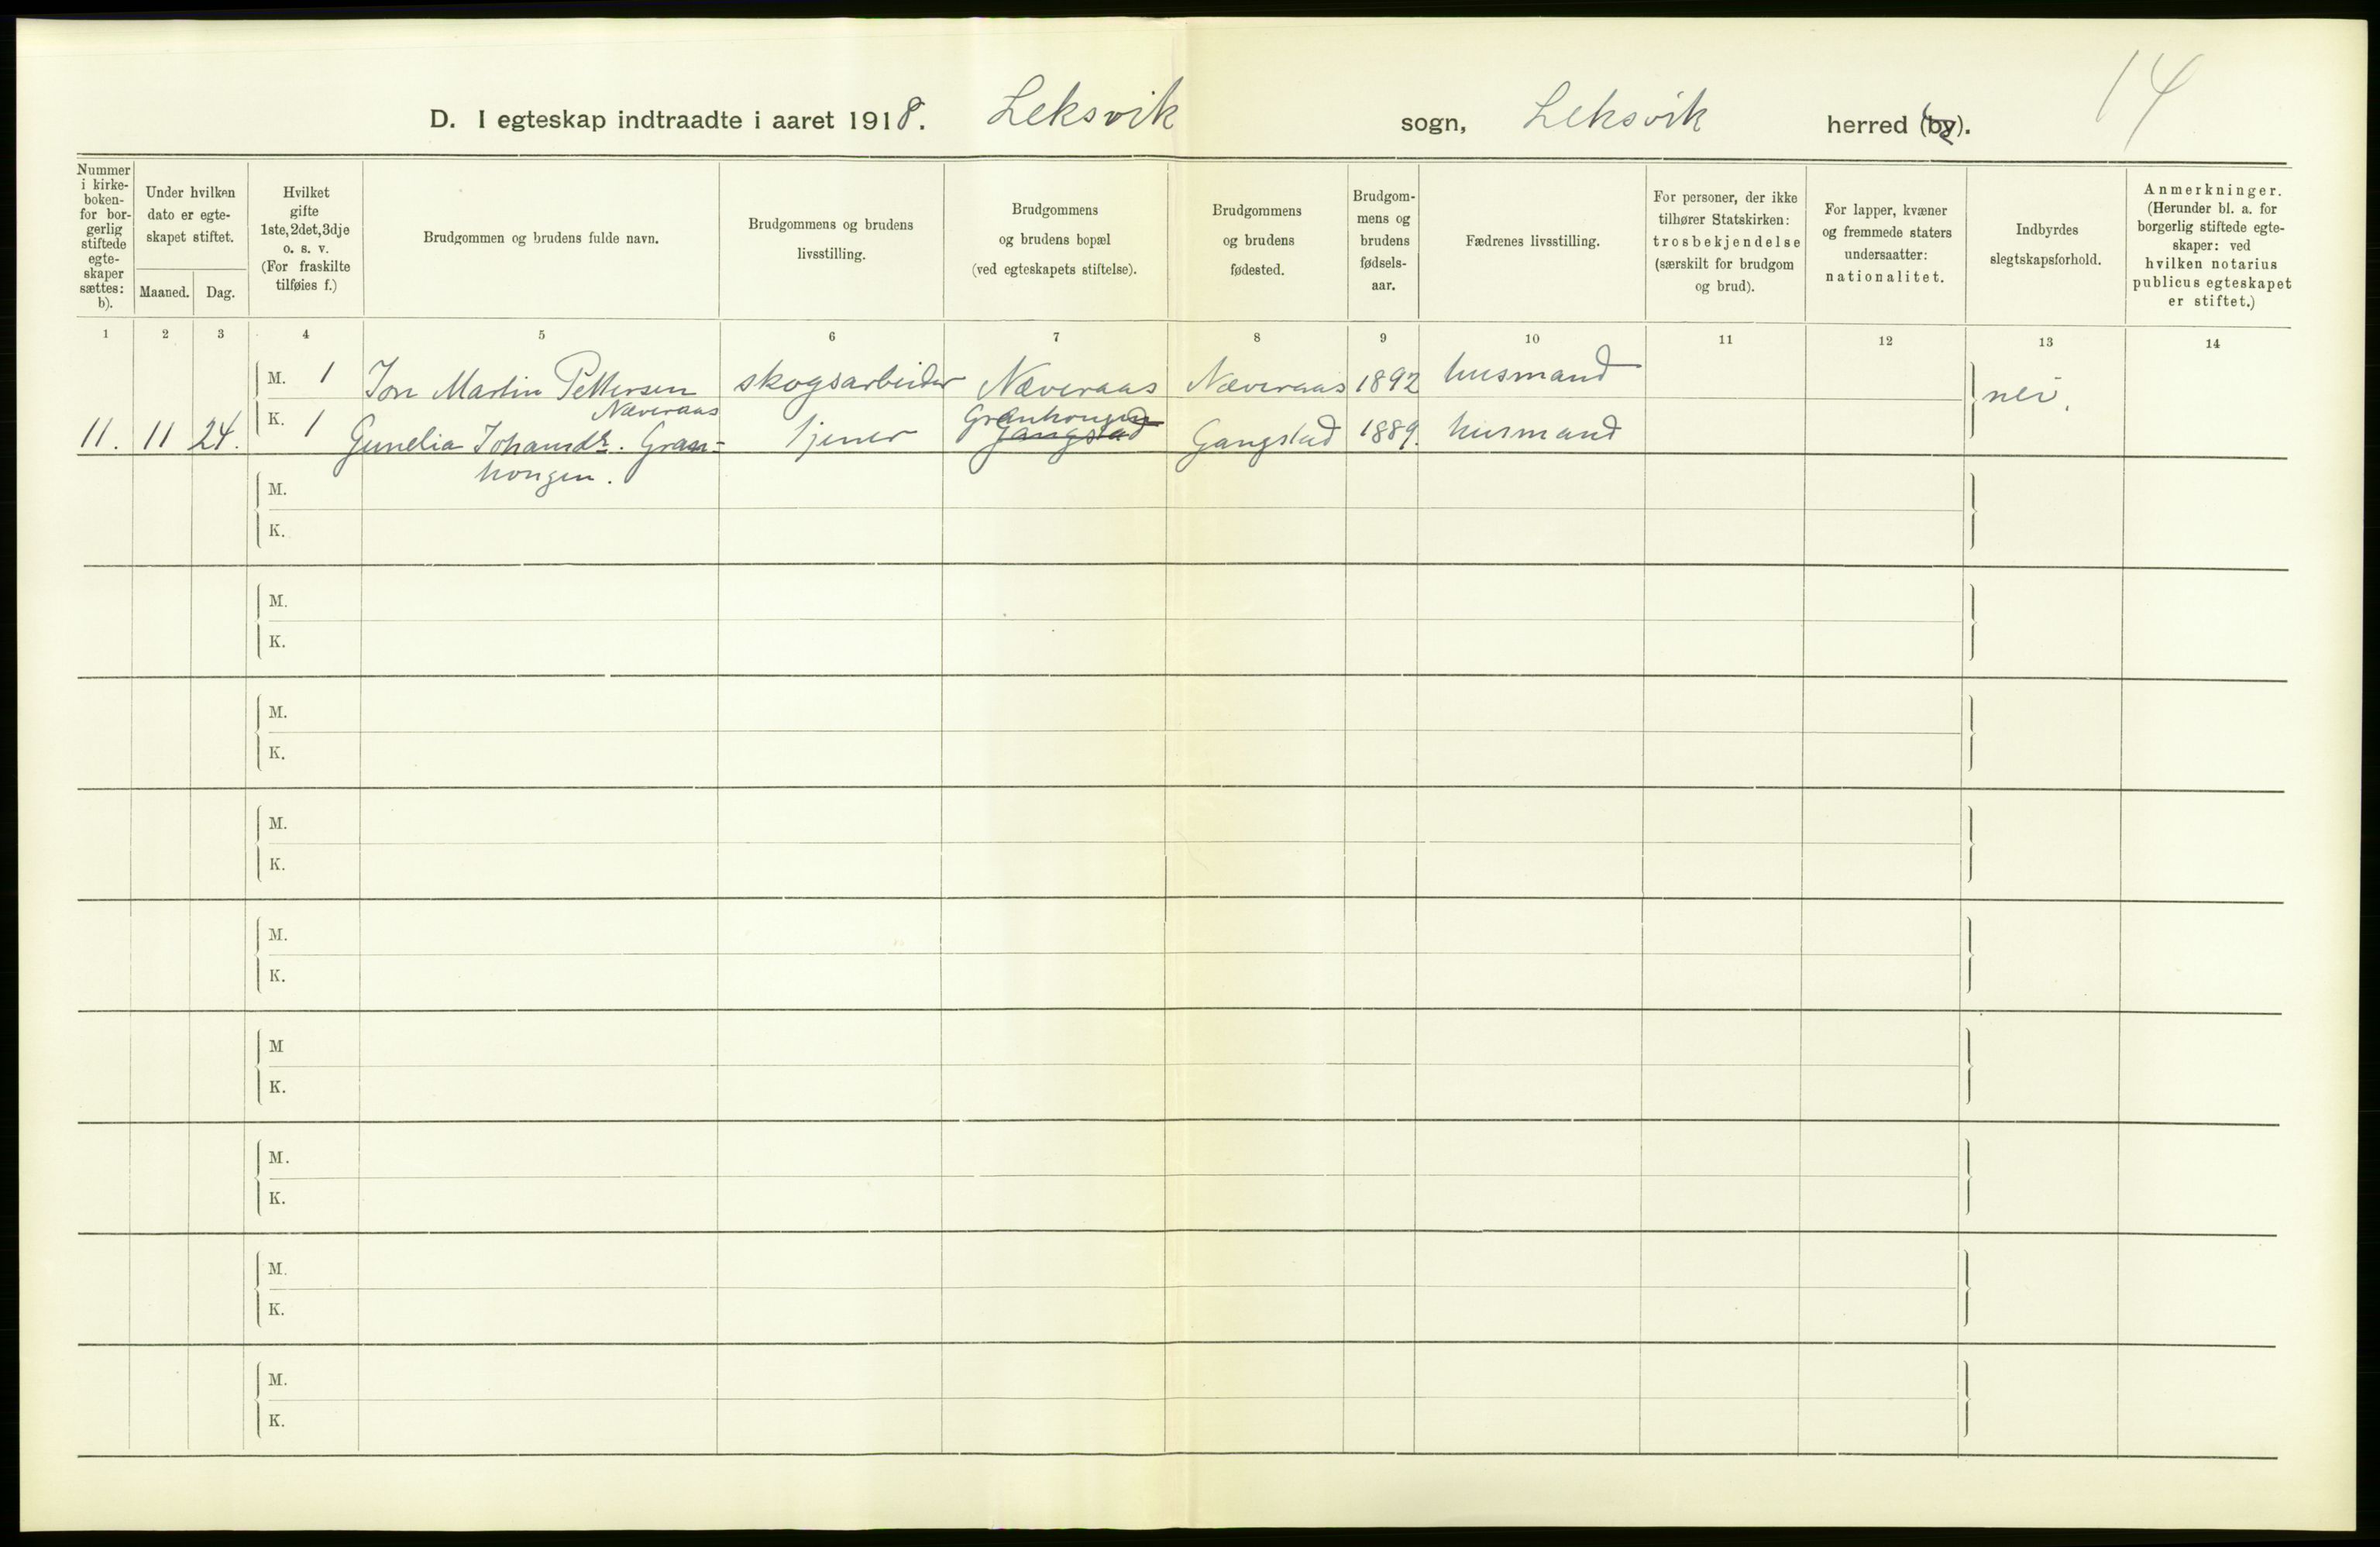 14
D. I egteskap indtraadte i aaret 1918. Leksvik sogn, Leksvik herred (by).
Nummer i kirkeboken- for borgerlig stiftede egteskaper sættes: b).
Under hvilken dato er egteskapet stiftet.
Maaned. Dag.
Hvilket gifte 1ste, 2det, 3dje o. s. v. (For fraskilte tilføies f.)
Brudgommen og brudens fulde navn.
Brudgommens og brudens livsstilling.
Brudgommens og brudens bopæl (ved egteskapets stiftelse).
Brudgommens og brudens fødested.
Brudgommens og brudens fødselsaar.
Fædrenes livsstilling.
For personer, der ikke tilhører Statskirken: trosbekjendelse (særskilt for brudgom og brud).
For lapper, kvæner og fremmede staters undersaatter: nationalitet.
Indbyrdes slegtskapsforhold.
Anmerkninger. (Herunder bl. a. for borgerlig stiftede egteskaper: ved hvilken notarius publicus egteskapet er stiftet.)
1 2 3 4 5 6 7 8 9 10 11 12 13 14
M. 1 Jon Martin Pettersen skogsarbeider Næveraas Næveraas 1892 husmand nei.
Næveraas Granhongen
11. 11 24. K. 1 Gunelia Johansdr. Gran- tjener Gangstad Gangstad 1889. husmand
hongen.
M.
K.
M.
K.
M.
K.
M.
K.
M.
K.
M
K.
M.
K.
M.
K.
M.
K.